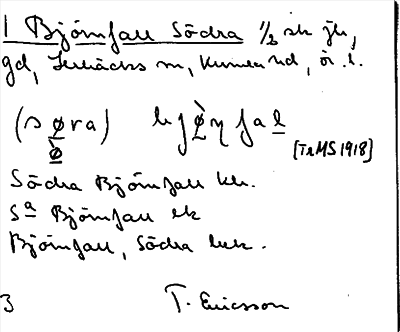 1 Björnfall Södra 1/2 sk jb,
gd, Lerbäcks sn, Kumla hd, ör. l.
(søra) bjø̀ŋfal
ø̀
[TeMS 1918]
Södra Björnfall kb.
Sa Björnfall ek
Björnfall, Södra
3 T. Ericsson